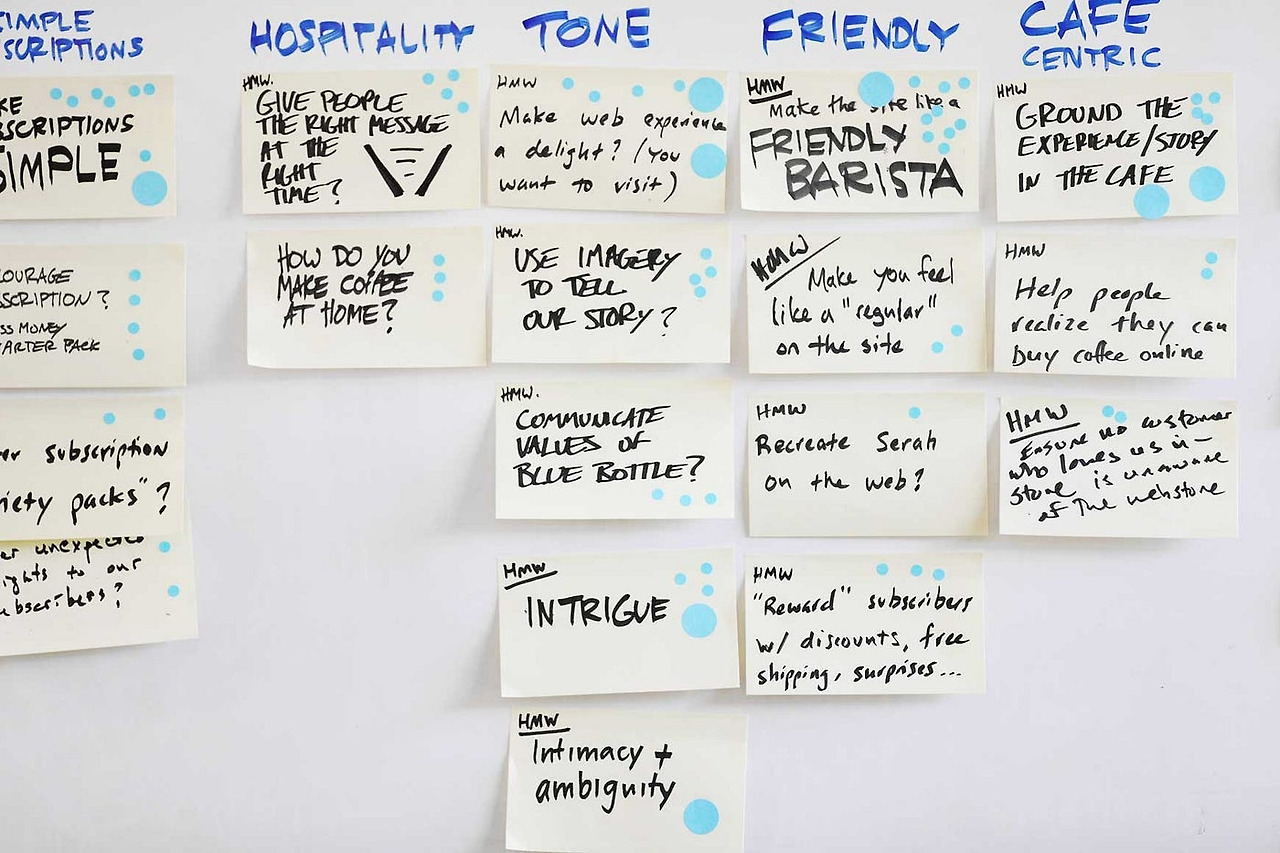 SIMPLE
SCRIPTIONS
KE
SCRIPTIONS
SIMPLE
OURAGE
SCRIPTION?
SS MONEY
ARTER PACK
er subscription
iety packs" ?
er unexpected
ights to our
ubscribers?
HOSPITALITY
HMW.
GIVE PEOPLE
THE RIGHT MESSAGE
AT THE
RIGHT
TIME?
HOW DO YOU
MAKE COFFEE
AT HOME?
TONE
HMW
Make web experience
a delight? (you
want to visit)
HMW.
USE IMAGERY
TO TELL
OUR STORY?
HMW.
COMMUNICATE
VALUES OF
BLUE BOTTLE?
HMW
INTRIGUE
HMW
Intimacy +
ambiguity
FRIENDLY
HMW
Make the site like a
FRIENDLY
BARISTA
HMW
Make you feel
like a "regular"
on the site
HMW
Recreate Serah
on the web?
HMW
"Reward" subscribers
w/ discounts, free
shipping, surprises...
CAFE
CENTRIC
HMW
GROUND THE
EXPERIENCE/STORY
IN THE CAFE
HMW
Help people
realize they can
buy coffee online
HMW
Ensure no customer
who loves us in-
store is unaware
of the webstore